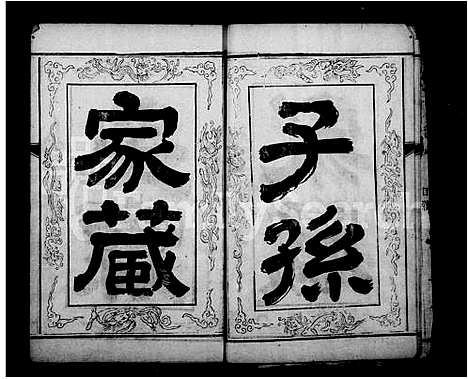 子孫
家藏